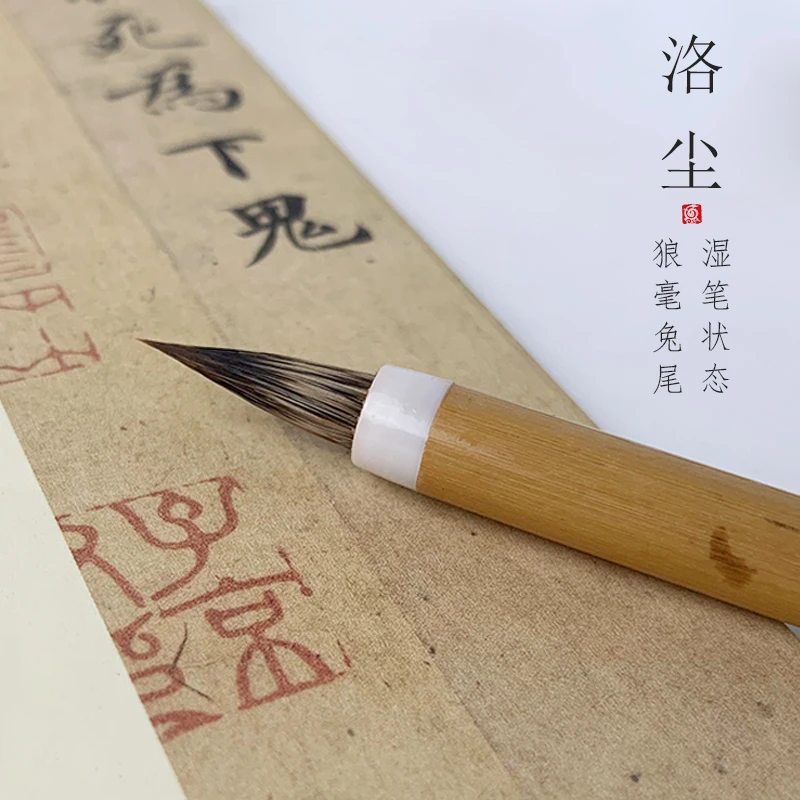 洛尘
湿笔状态
狼毫兔尾
死為下鬼